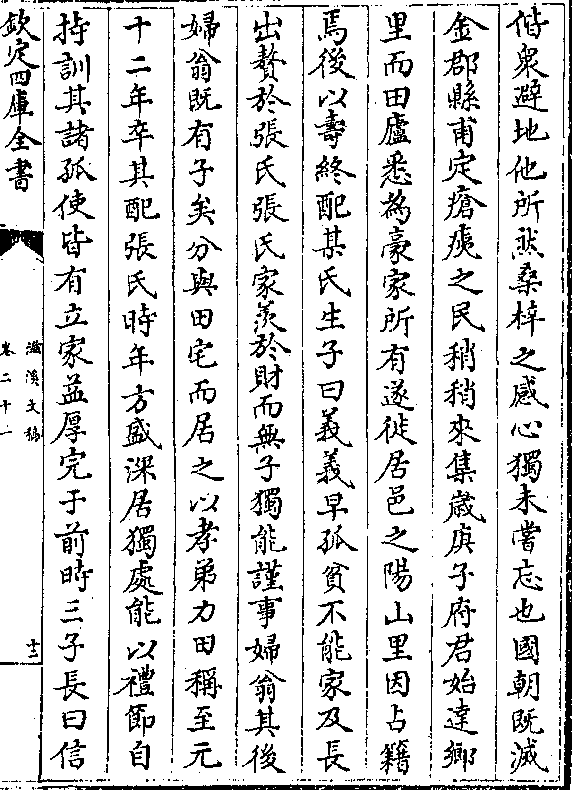 偕衆避地他所然桑梓之感心獨未嘗忘也國朝既滅
金郡縣甫定瘡痍之民稍稍來集歳庚子府君始達鄉
里而田廬悉為豪家所有遂徙居邑之陽山里因占籍
焉後以壽終配某氏生子曰義義早孤貧不能家及長
出贅於張氏張氏家羨於財而無子獨能謹事婦翁其後
婦翁既有子矣分與田宅而居之以孝弟力田稱至元
十二年卒其配張氏時年方盛深居獨處能以禮節自
持訓其諸孤使皆有立家益厚完于前時三子長曰信
欽定四庫全書
滋溪文稿
卷二十一
十二